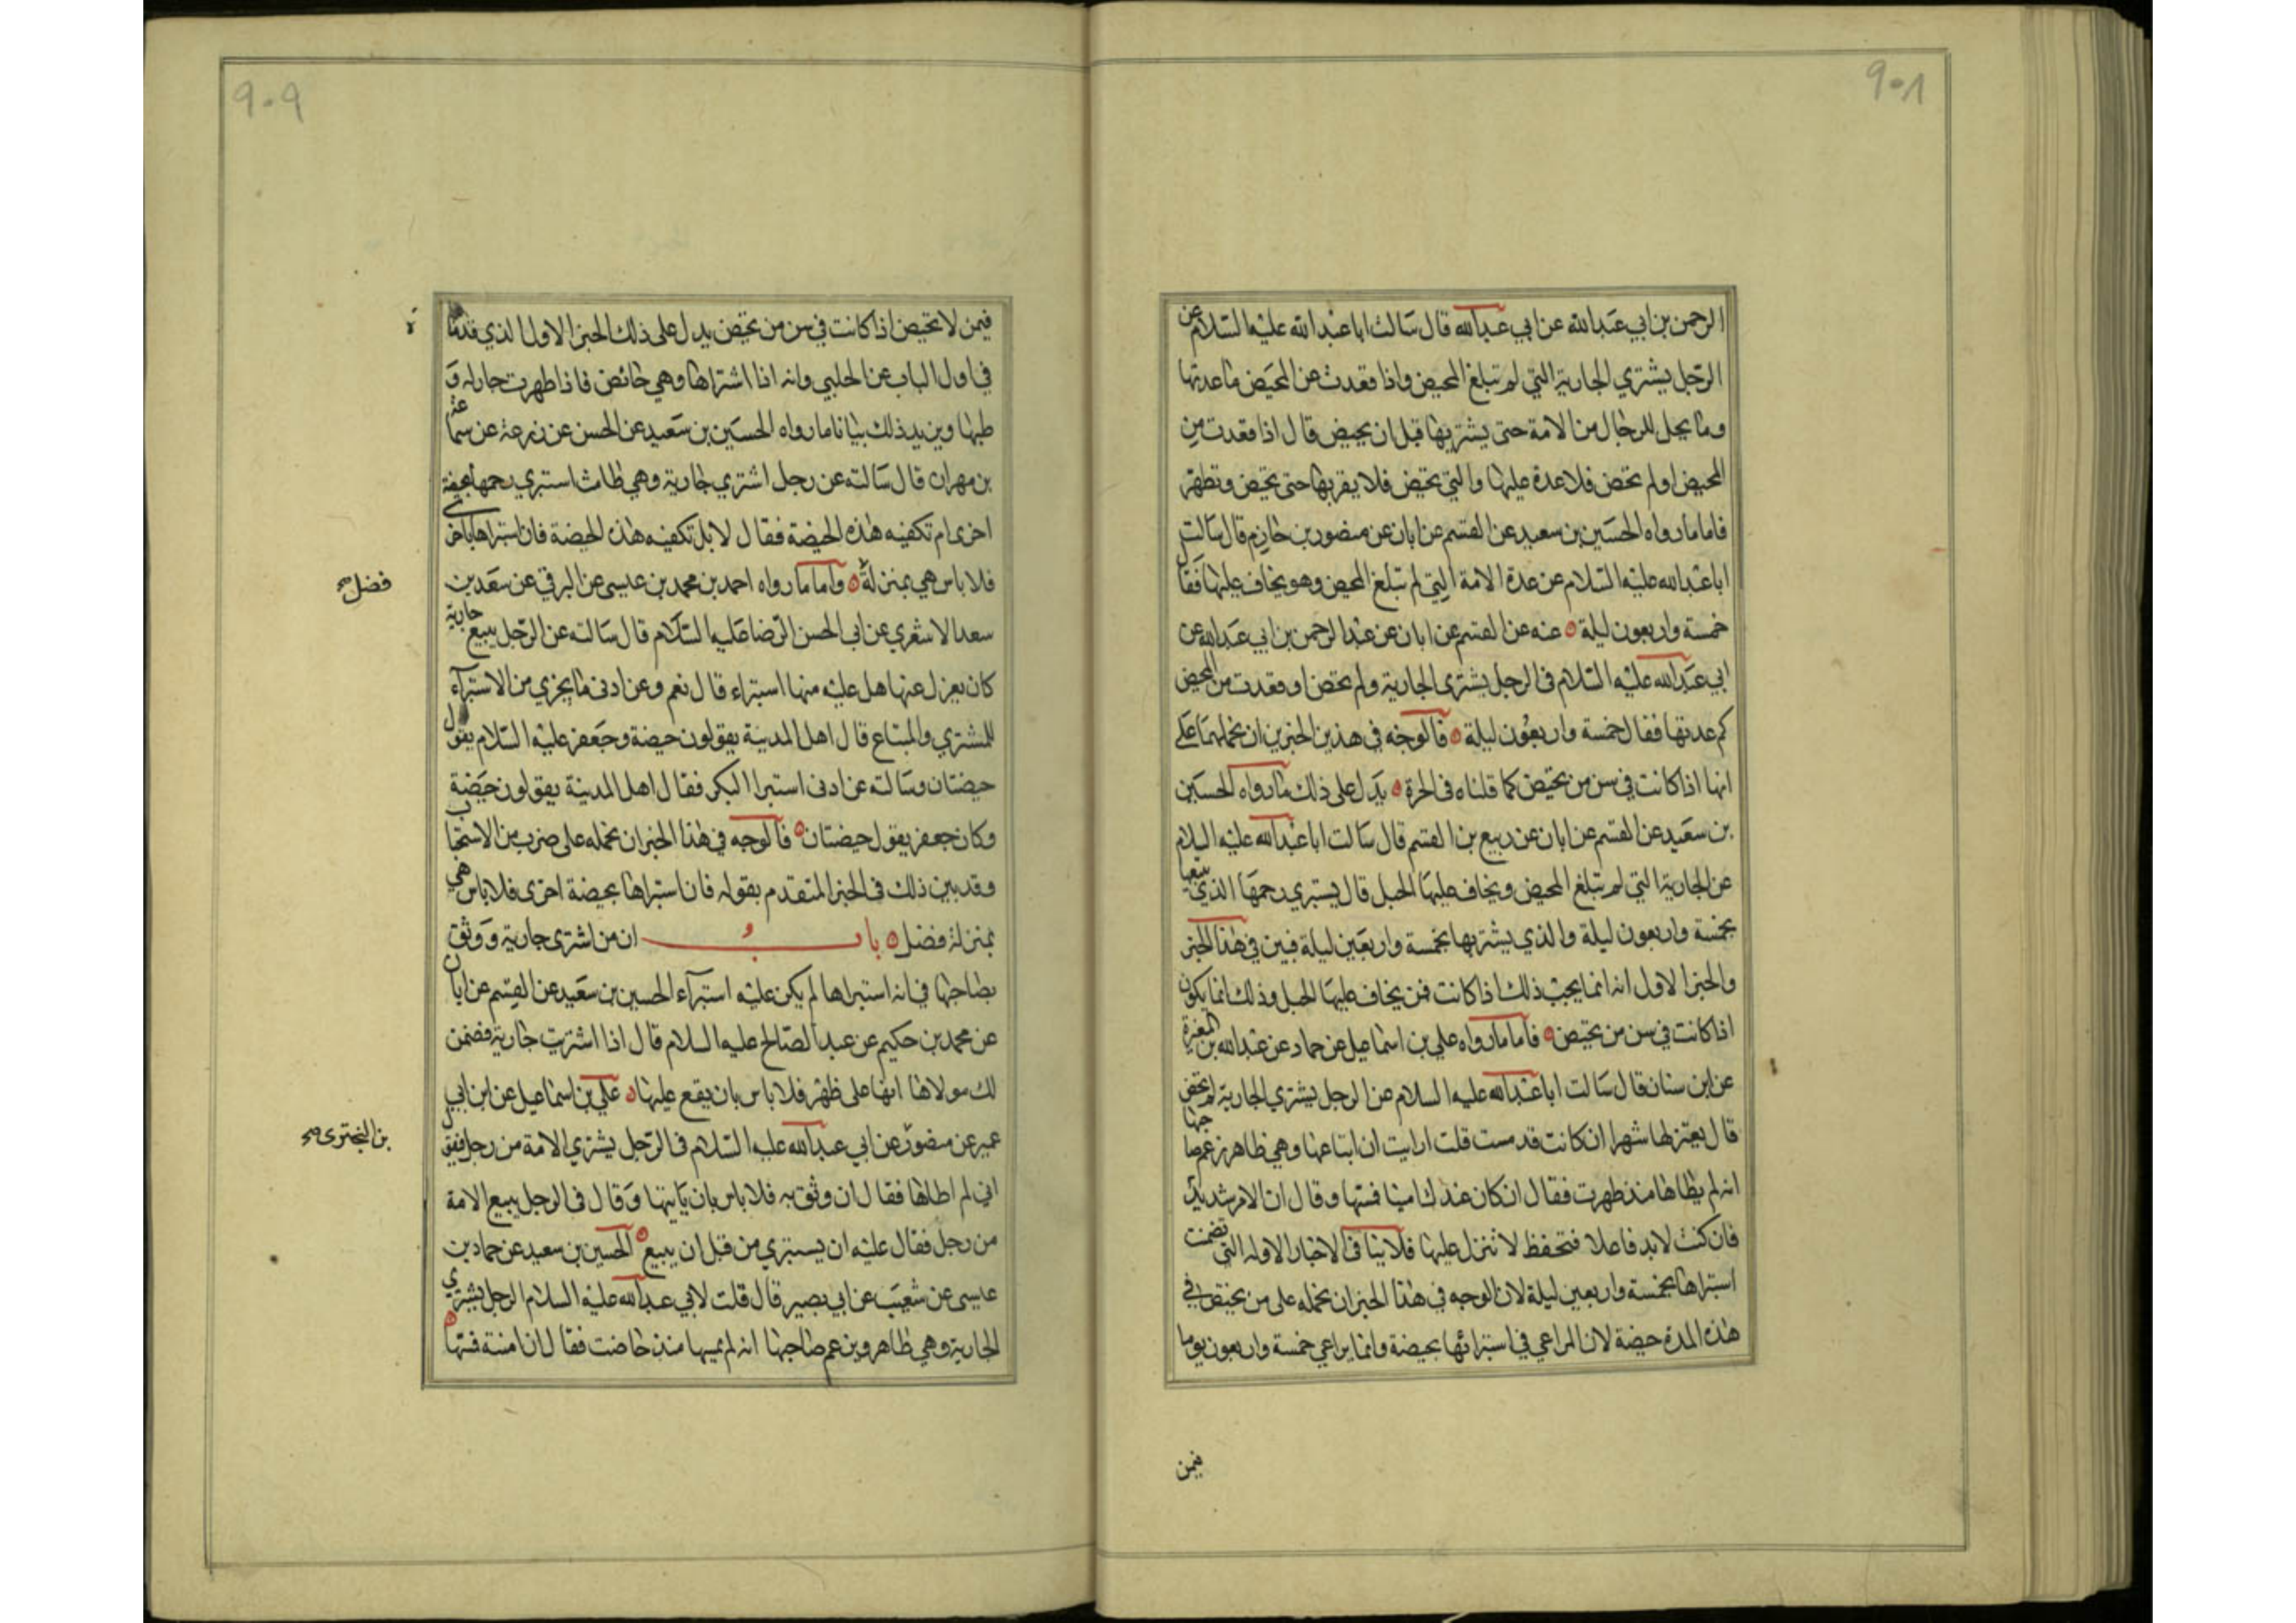 ٩٠٨
الرحمن بن ابي عبد الله عن ابي عبد الله قال سالت ابا عبد الله عليه السلام عن
الرجل يشتري الجارية التي لم تبلغ المحيض واذا قعدت عن المحيض ما عدتها
وما يحل للرجال من الامة حتى يشتريها قبل ان يحيض قال اذا قعدت من
المحيض او لم تحض فلا عدة عليها والتي تحيض فلا يقربها حتى تحيض وتطهر
فاما ما رواه الحسين بن سعيد عن القسم عن ابان عن منصور بن حازم قال سالت
ابا عبد الله عليه السلام عن عدة الامة التي لم تبلغ المحيض وهو يخاف عليها فقال
خمسة واربعون ليلة عنه عن القسم عن ابان عن عبد الرحمن بن ابي عبد الله عن
ابي عبد الله عليه السلام في الرجل يشترى الجارية ولم تحض او قعدت من المحيض
كم عدتها فقال خمسة واربعون ليلة فالوجه في هذين الخبرين ان نحملهما على
انها اذا كانت في سن من تحيض كما قلناه في الحرة يدل على ذلك ما رواه الحسين
بن سعيد عن القسم عن ابان عن ربيع بن القسم قال سالت ابا عبد الله عليه السلام
عن الجارية التي لم تبلغ المحيض ويخاف عليها الحبل قال يستبري رحمها الذي يبيعها
بخمسة واربعون ليلة والذي يشتريها بخمسة واربعين ليلة فبين في هذا الخبر
والخبر الاول انه انما يجب ذلك اذا كانت فمن يخاف عليها الحبل وذلك انما يكون
اذا كانت في سن من تحيض فاما ما رواه علي بن اسماعيل عن حماد عن عبد الله بن المغيرة
عن ابن سنان قال سالت ابا عبد الله عليه السلام عن الرجل يشتري الجارية لم تحض
قال يعتزلها شهرا ان كانت قد مست قلت ارايت ان ابتاعها وهي طاهر زعم صاحبها
انه لم يطاها منذ طهرت فقال ان كان عندك امينا فمسها وقال ان الامر شديد
فان كنت لا بد فاعلا فتحفظ لا تنزل عليها فلا ينافى الاخبار الاوله التي تضمنت
استبراها بخمسة واربعين ليلة لان الوجه في هذا الخبر ان نحمله على من تحيض في
هذه المدة حيضة لان المراعي في استبرائها بحيضة وانما يراعي خمسة واربعون يوما
فيمن
٩٠٩
فيمن لا تحيض اذا كانت في سن من تحيض يدل على ذلك الخبر الاول الذي قدمنا
في اول الباب عن الحلبي وانه اذا اشتراها وهي حائض فاذا طهرت جاز له و
طيها ويزيد ذلك بيانا ما رواه الحسين بن سعيد عن الحسن عن زرعة عن سماعة
بن مهران قال سالته عن رجل اشترى جارية وهي طامث استبري رحمها بحيضة
اخرى ام تكفيه هذه الحيضة فقال لا بل تكفيه هذه الحيضة فان استبراها باخرى
فلا باس هي بمنزلة واما ما رواه احمد بن محمد بن عيسى عن البرقي عن سعد بن
فضل صح
سعد الاشعري عن ابي الحسن الرضا عليه السلام قال سالته عن الرجل يبيع جارية
كان يعزل عنها هل عليه منها استبراء قال نعم وعن ادنى ما يجزي من الاستبراء
للمشتري والمبتاع قال اهل المدينة يقولون حيضة وجعفر عليه السلام يقول
حيضتان وسالته عن ادنى استبرا البكر فقال اهل المدينة يقولون حيضة
وكان جعفر يقول حيضتان فالوجه في هذا الخبر ان نحمله على ضرب من الاستحباب
وقد بين ذلك في الخبر المتقدم بقوله فان استبراها بحيضة اخرى فلا باس هي
بمنزلة فضل باب ان من اشترى جارية ووثق
بصاحبها في انه استبراها لم يكن عليه استبرآء الحسين بن سعيد عن القسم عن ابان
عن محمد بن حكيم عن عبد الصالح عليه السلام قال اذا اشتريت جارية فضمن
لك مولاها انها على طهر فلا باس بان يقع عليها علي بن اسماعيل عن ابن ابي
عمير عن منصور عن ابي عبد الله عليه السلام في الرجل يشتري الامة من رجل فيقول
بن البختري صح
اني لم اطاها فقال ان وثق به فلا باس بان ياتيها وقال في الرجل يبيع الامة
من رجل فقال عليه ان يستبري من قبل ان يبيع الحسين بن سعيد عن حماد بن
عيسى عن شعيب عن ابي بصير قال قلت لابي عبد الله عليه السلام الرجل يشتري
الجارية وهي طاهر ويزعم صاحبها انه لم يمسها منذ حاضت فقال ان امنته فمسها